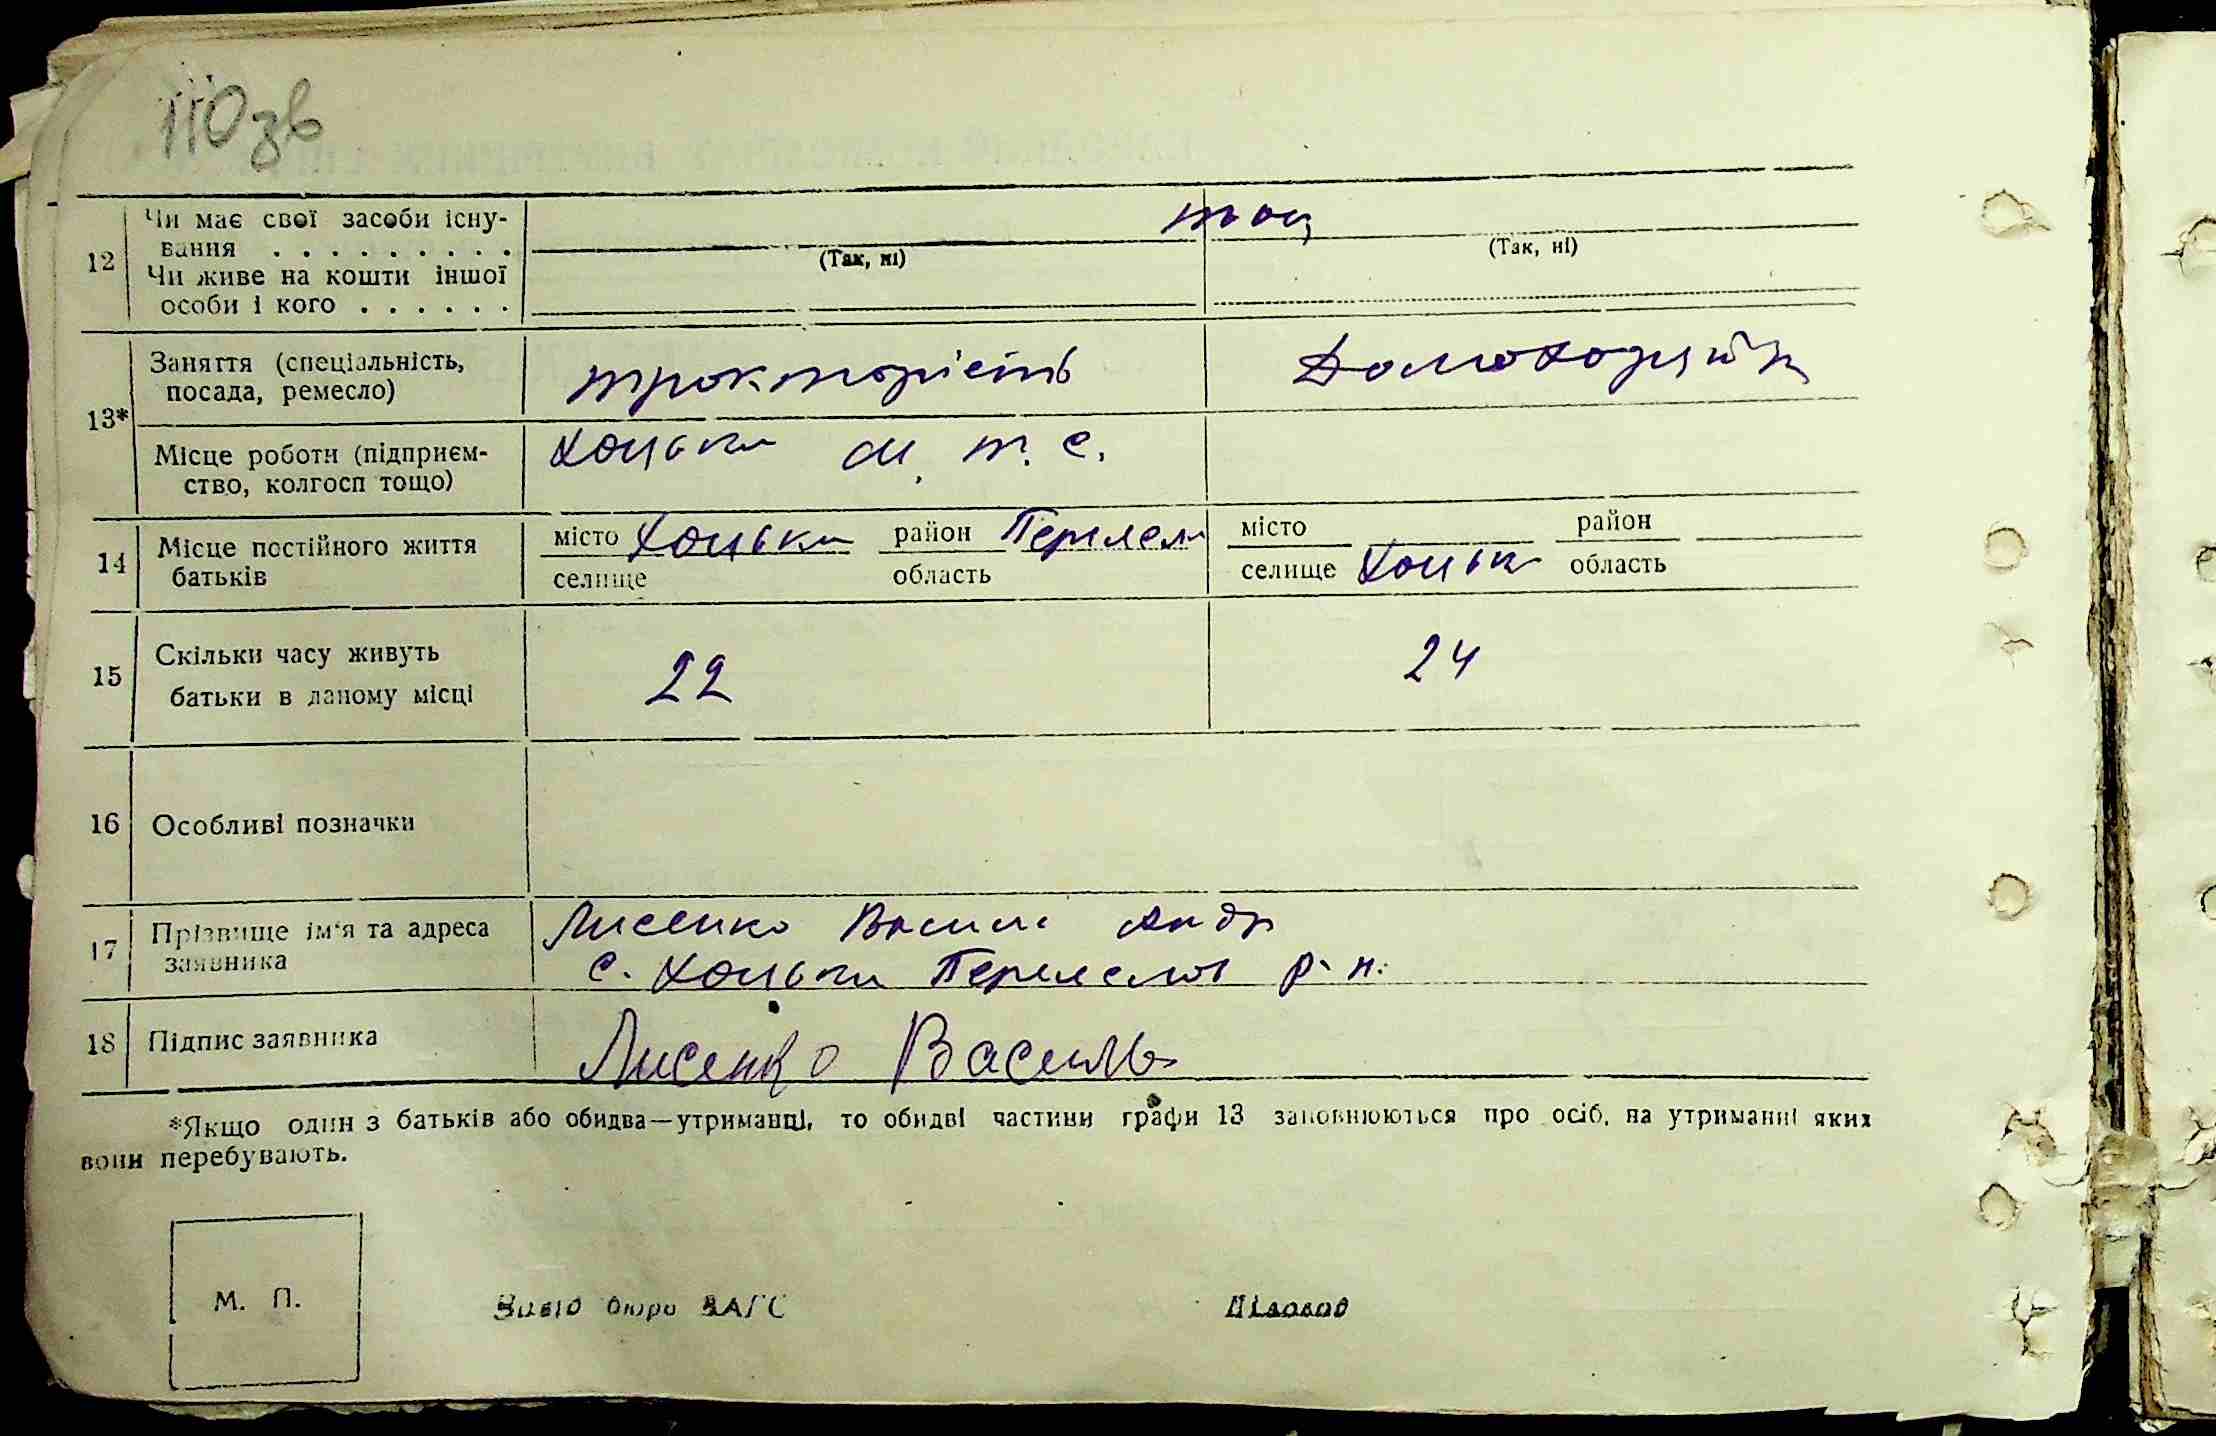 110 зв
12 Чи має свої засоби існу-
вання . . . . . . . . .
(Так, ні) (Так, ні)
Чи живе на кошти іншої
особи і кого . . . . . .
13* Заняття (спеціальність,
посада, ремесло) тракторість
Місце роботи (підприєм-
ство, колгосп тощо) Хоцьки м. т. с.
14 Місце постійного життя
батьків
місто Хоцьки район місто район
селище область селище Хоцьк область
15 Скільки часу живуть
батьки в даному місці 22 24
16 Особливі позначки
17 Прізвище ім'я та адреса
заявника
Лисенко Андр
с. Хоцьки р-н.
18 Підпис заявника Лисенко Василь
*Якщо один з батьків або обидва—утриманці, то обидві частини графи 13 заповнюються про осіб, на утриманні яких
вони перебувають.
М. П. бюро ЗАГС